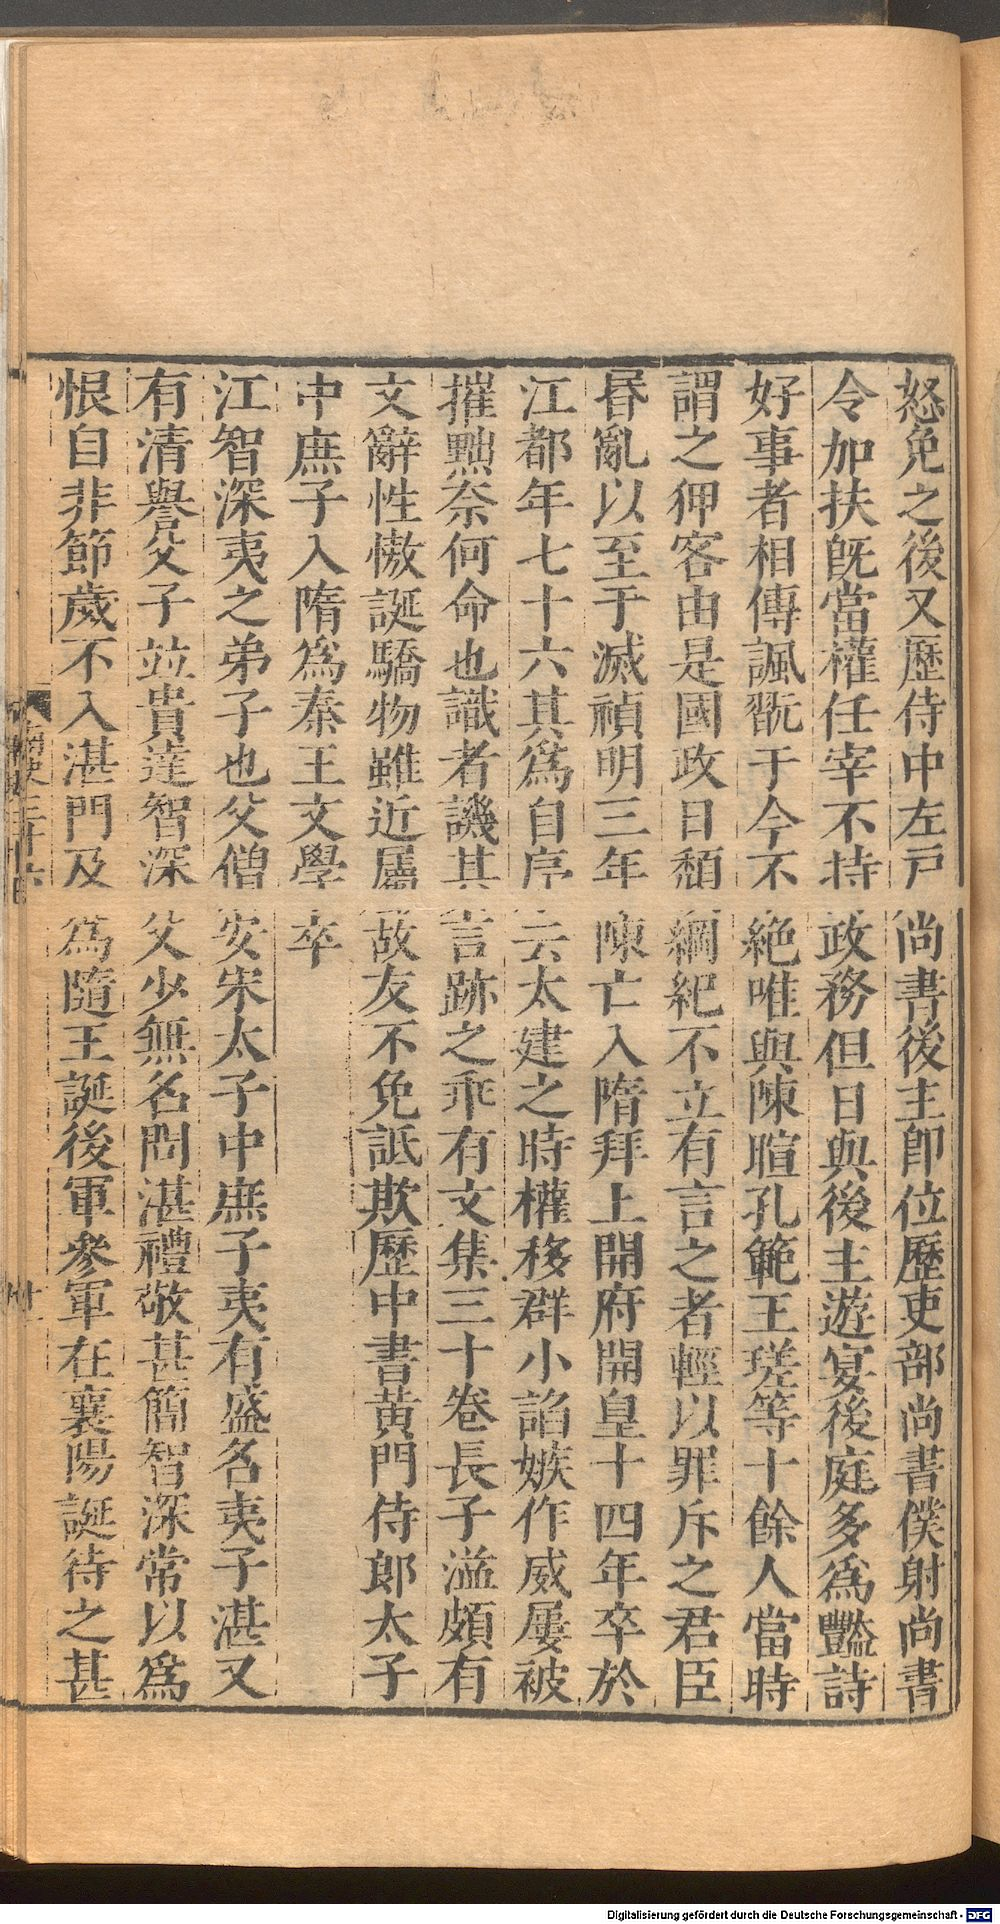 怒免之後又歷侍中左戶尚書後主卽位歷吏部尚書僕射尚書
令加扶旣當權任宰不持政務但日與後主遊宴後庭多爲豔詩
好事者相傳諷翫于今不絶唯與陳暄孔範王瑳等十餘人當時
謂之狎客由是國政日頽綱紀不立有言之者輕以罪斥之君臣
昬亂以至于滅禎明三年陳亡入隋拜上開府開皇十四年卒於
江都年七十六其爲自序云太建之時權移群小諂嫉作威屢被
摧黜奈何命也識者譏其言跡之乖有文集三十卷長子溢頗有
文辭性慠誕驕物雖近屬故友不免詆欺歷中書黄門侍郎太子
中庶子入隋爲秦王文學卒
江智深夷之弟子也父僧安宋太子中庶子夷有盛名夷子湛又
有清譽父子竝貴達智深父少無名問湛禮敬甚簡智深常以爲
恨自非節歲不入湛門及爲隨王誕後軍參軍在襄陽誕待之甚
南史三十六
十一
Digitalisierung gefördert durch die Deutsche Forschungsgemeinschaft - DFG